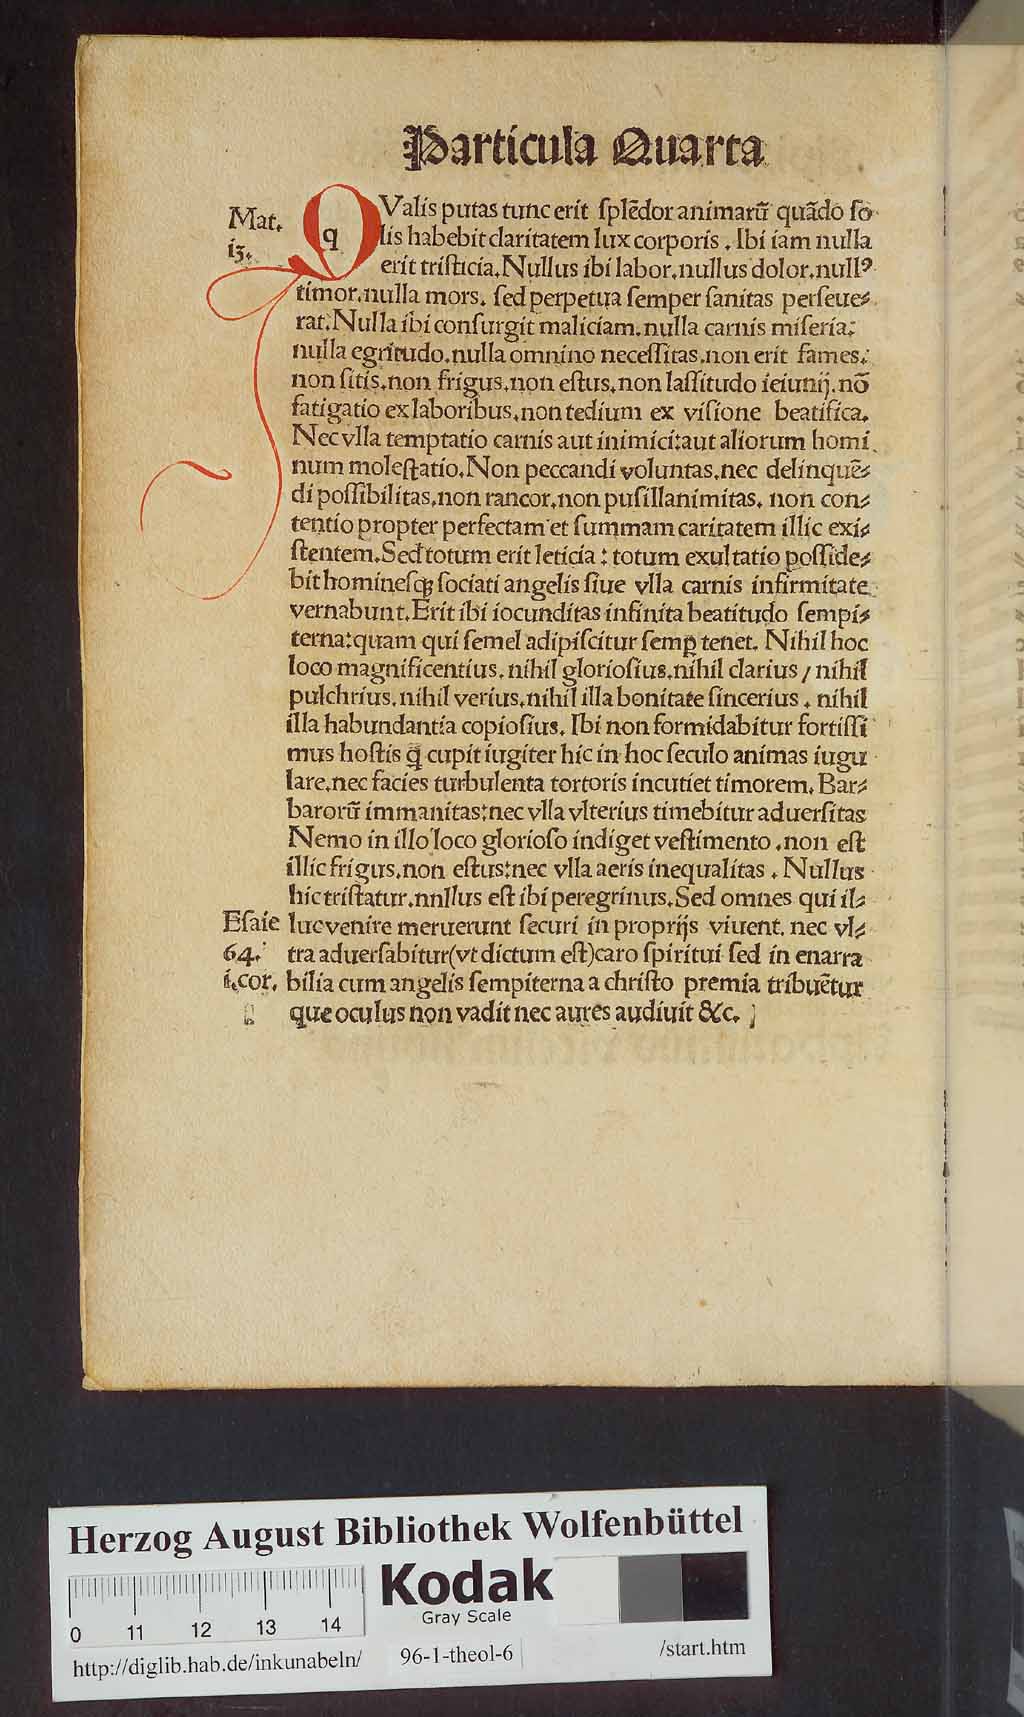 Particula Quarta
Mat.
13.
q
QValis putas tunc erit ſplēdor animarū quādo ſo
lis habebit claritatem lux corporis. Ibi iam nulla
erit triſticia. Nullus ibi labor. nullus dolor. nullꝰ
timor. nulla mors. ſed perpetua ſemper ſanitas perſeue⸗
rat. Nulla ibi conſurgit maliciam. nulla carnis miſeria:
nulla egritudo. nulla omnino neceſſitas. non erit fames:
non ſitis. non frigus. non eſtus. non laſſitudo ieiunij. nō
fatigatio ex laboribus. non tedium ex viſione beatifica.
Nec vlla temptatio carnis aut inimici: aut aliorum homi
num moleſtatio. Non peccandi voluntas. nec delinquē⸗
di poſſibilitas. non rancor. non puſillanimitas. non con⸗
tentio propter perfectam et ſummam caritatem illic exi⸗
ſtentem. Sed totum erit leticia: totum exultatio poſſide⸗
bit homineſqꝫ ſociati angelis ſiue vlla carnis infirmitate
vernabunt. Erit ibi iocunditas infinita beatitudo ſempi⸗
terna: quam qui ſemel adipiſcitur ſemꝑ tenet. Nihil hoc
loco magnificentius. nihil glorioſius. nihil clarius / nihil
pulchrius. nihil verius. nihil illa bonitate ſincerius. nihil
illa habundantia copioſius. Ibi non formidabitur fortiſſi
mus hoſtis q̄ cupit iugiter hic in hoc ſeculo animas iugu
lare. nec facies turbulenta tortoris incutiet timorem. Bar⸗
barorū immanitas: nec vlla vlterius timebitur aduerſitas
Nemo in illo loco glorioſo indiget veſtimento. non eſt
illic frigus. non eſtus: nec vlla aeris inequalitas. Nullus
hic triſtatur. nnllus eſt ibi peregrinus. Sed omnes qui il⸗
Eſaie
64.
i.cor.
luc venire meruerunt ſecuri in proprijs viuent. nec vl⸗
tra aduerſabitur (vt dictum eſt) caro ſpiritui ſed in enarra
bilia cum angelis ſempiterna a chriſto premia tribuētur
que oculus non vadit nec aures audiuit &c.
Herzog August Bibliothek Wolfenbüttel
0 11 12 13 14
Kodak
Gray Scale
http://diglib.hab.de/inkunabeln/ 96-1-theol-6 /start.htm